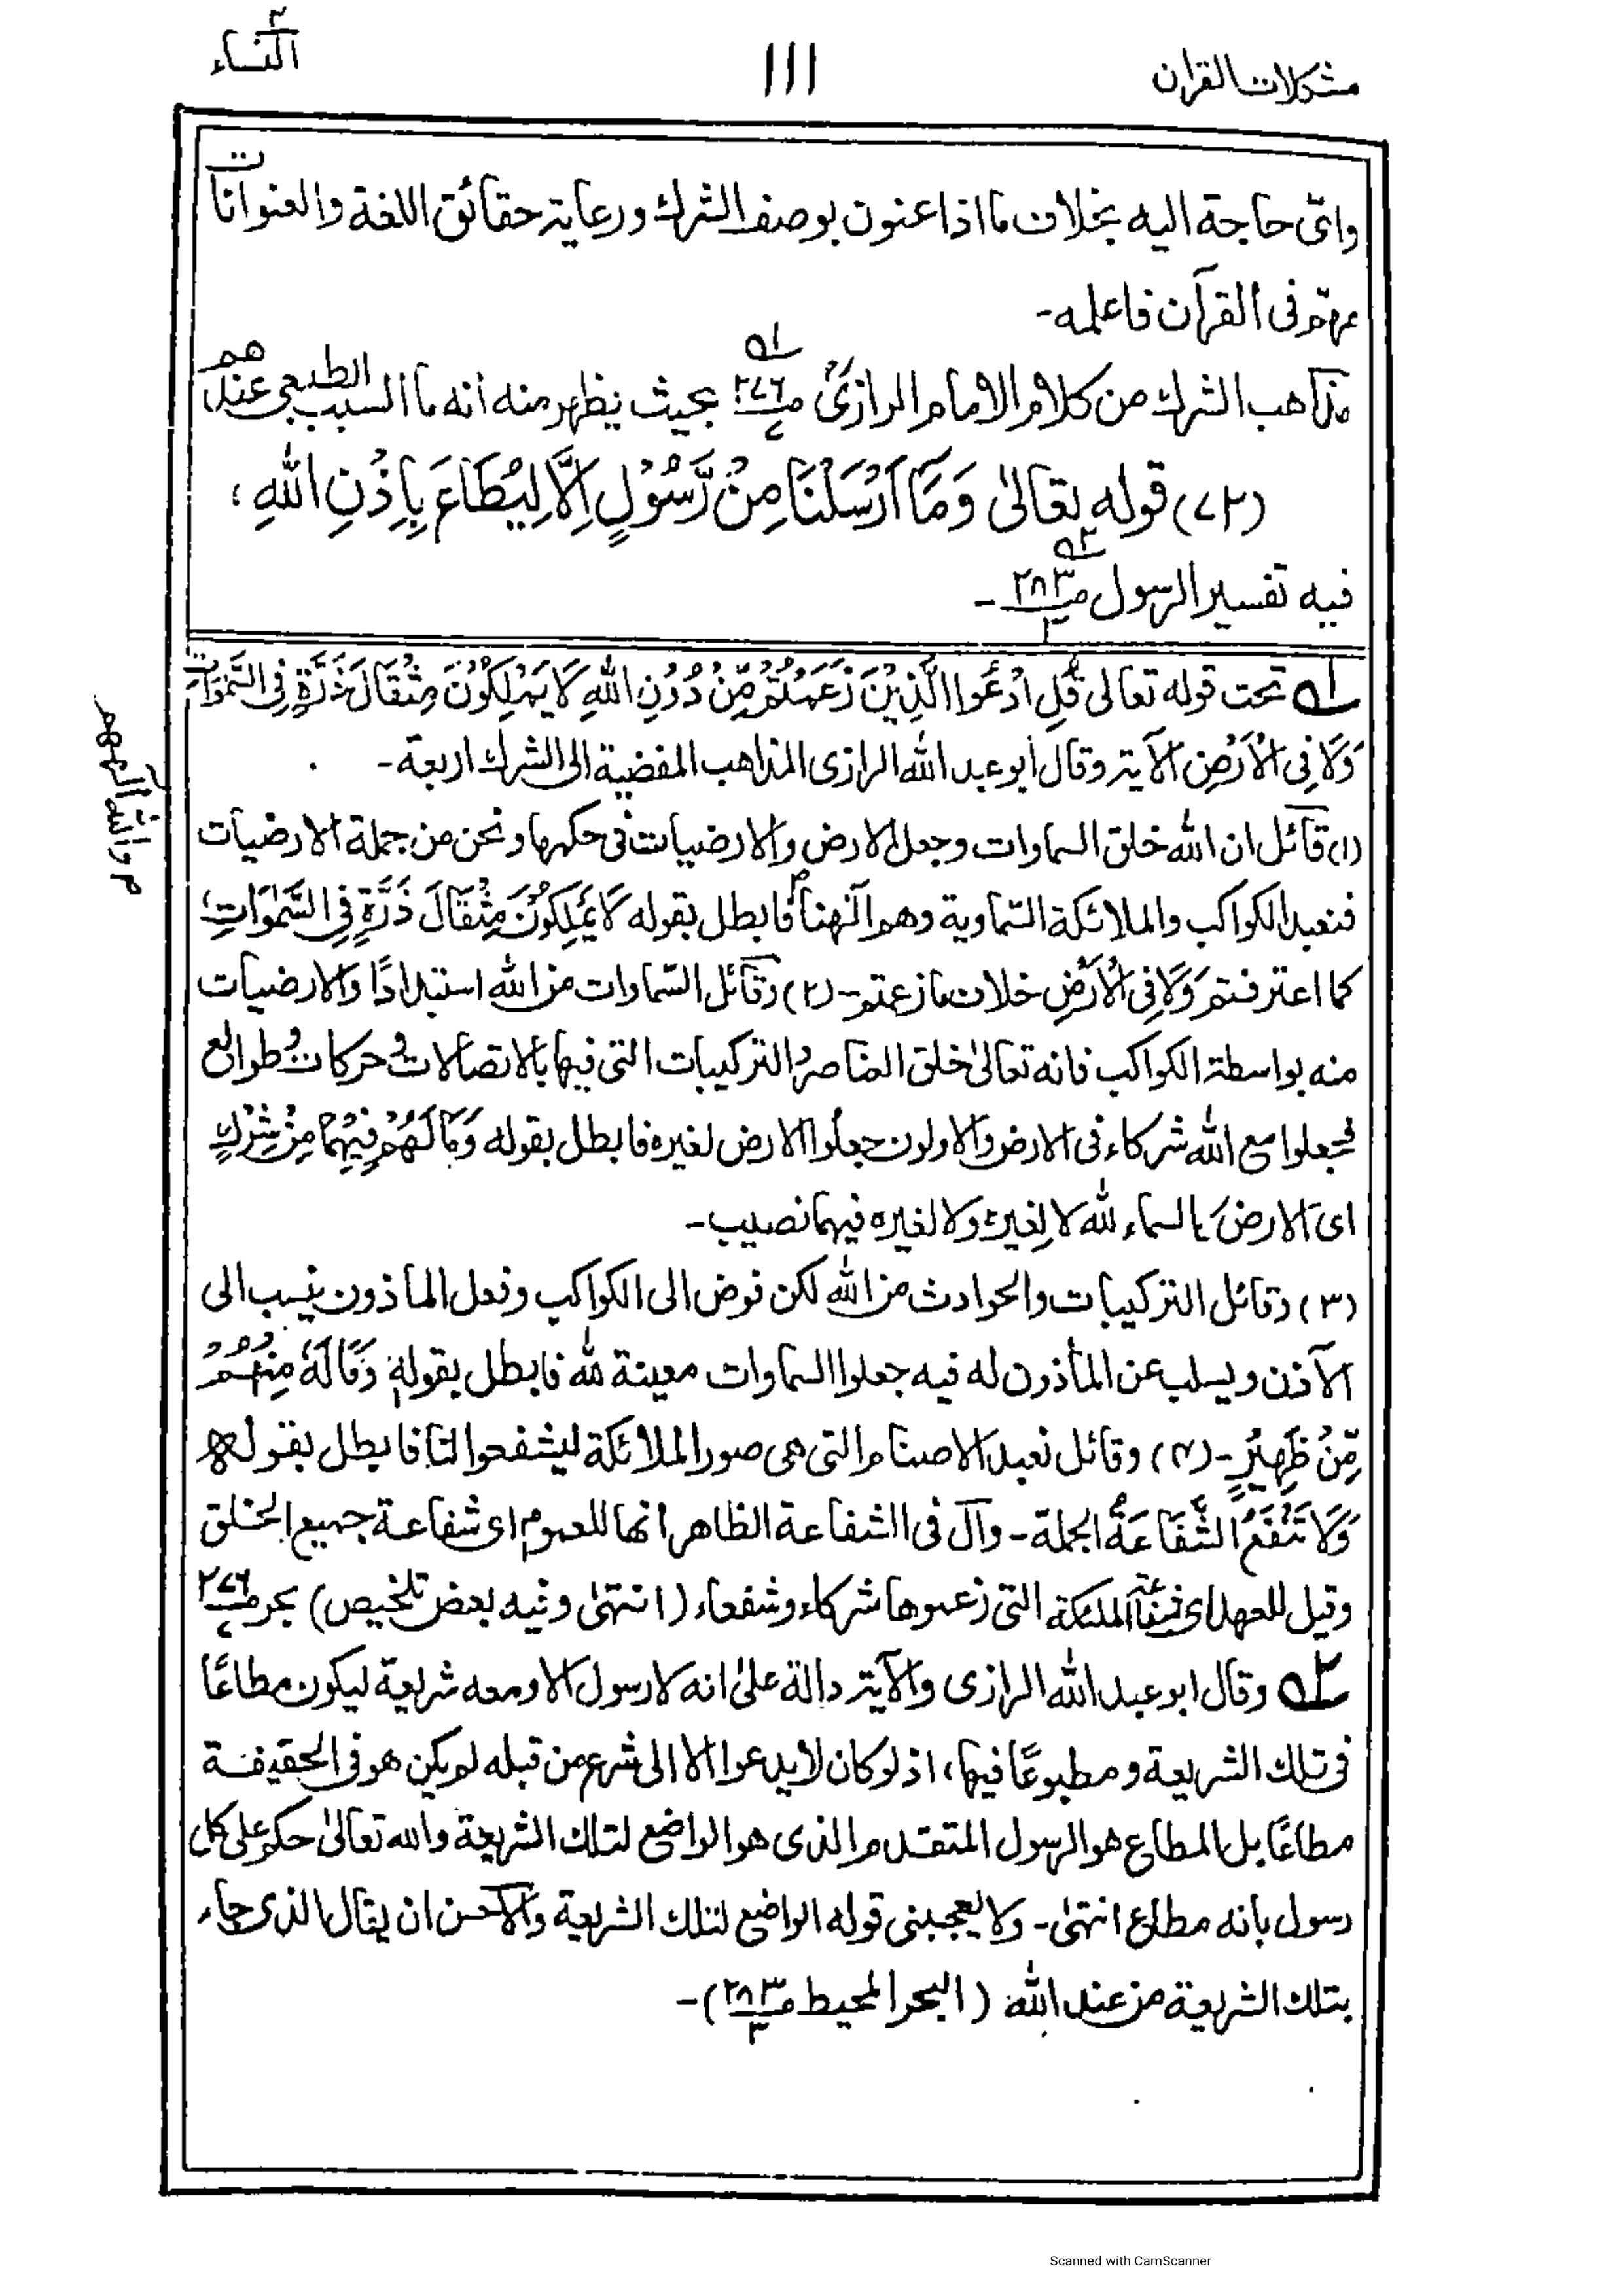 مشکلات القرآن ۱۱۱ النساء ۴
وای حاجة الیه بخلاف ما اذا عنون بوصف الشرك ورعایة حقائق اللغة والعنوانات
مهمّ فی القرآن فاعلمه-
مذاهب الشرك من کلام الامام الرازیؒ ص۲۷۶ ج۷ ؎۱ بحیث یظهر منه انه ما السبب الطبعی عندهم
(۷۲) قوله تعالیٰ وَمَآ اَرْسَلْنَا مِنْ رَّسُوْلٍ اِلَّا لِیُطَاعَ بِاِذْنِ اللّٰهِ،
فیه تفسیر الرسول ص۲۸۳ ج۳ ؎۲-
؎۱ تحت قوله تعالی قُلِ ادْعُوا الَّذِیْنَ زَعَمْتُمْ مِّنْ دُوْنِ اللّٰهِ لَا یَمْلِكُوْنَ مِثْقَالَ ذَرَّةٍ فِی السَّمٰوَاتِ
وَلَا فِی الْاَرْضِ الآیة وقال ابو عبد الله الرازی المذاهب المفضیة الی الشرك اربعة-
(۱) قائل ان الله خلق السماوات وجعل الارض والارضیات فی حکمها ونحن من جملة الارضیات
فنعبد الکواکب والملائکة السّماویة وهم آلهتنا م فابطل بقوله لَا یَمْلِكُوْنَ مِثْقَالَ ذَرَّةٍ فِی السَّمٰوَاتِ
م والله آلههم
کما اعترفتم وَلَا فِی الْاَرْضِ خلاف ما زعتم-(۲) وقائل السّماوات من الله استبدادًا والارضیات
منه بواسطة الکواکب فانه تعالیٰ خلق العناصر والترکیبات التی فیها بالاتصالات وحرکات وطوالع
فجعلوا مع الله شرکاء فی الارض والاولون جعلوا الارض لغیره فابطل بقوله وَمَا لَهُمْ فِیْهِمَا مِنْ شِرْكٍ
ای الارض کالسماء لله لا لغیره ولا لغیره فیهما نصیب-
(۳) وقائل الترکیبات والحوادث من الله لکن فوض الی الکواکب وفعل الماذون ینسب الی
الآذن ویسلب عن المأذون له فیه جعلوا السماوات معینة لله فابطل بقوله وَمَا لَهٗ مِنْهُمْ
مِّنْ ظَهِیْرٍ-(۴) وقائل نعبد الاصنام التی هی صور الملائکة لیشفعوا لنا فابطل بقوله
وَلَا تَنْفَعُ الشَّفَاعَةُ الجملة- وآل فی الشفاعة الظاهر انها للعموم ای شفاعة جمیع الخلق
وقیل للعهد ای شفاعة الملئکة التی زعموها شرکاء وشفعاء (انتهیٰ وفیه بعض تلخیص) بحر ص۲۷۶ ج۷
؎۲ وقال ابو عبد الله الرازی والآیة دالة علیٰ انه لا رسول الا ومعه شریعة لیکون مطاعًا
فی تلك الشریعة ومطبوعًا فیها، اذ لو کان لا یدعوا الا الی شرع من قبله لم یکن هو فی الحقیقة
مطاعًا بل المطاع هو الرسول المتقدم الذی هو الواضع لتلك الشریعة والله تعالیٰ حکم علی کل
رسول بانه مطاع انتهیٰ- ولا یعجبنی قوله الواضع لتلك الشریعة والاحسن ان یقال الذی جاء
بتلك الشریعة من عند الله (البحر المحیط ص۲۸۳ ج۳)-
Scanned with CamScanner